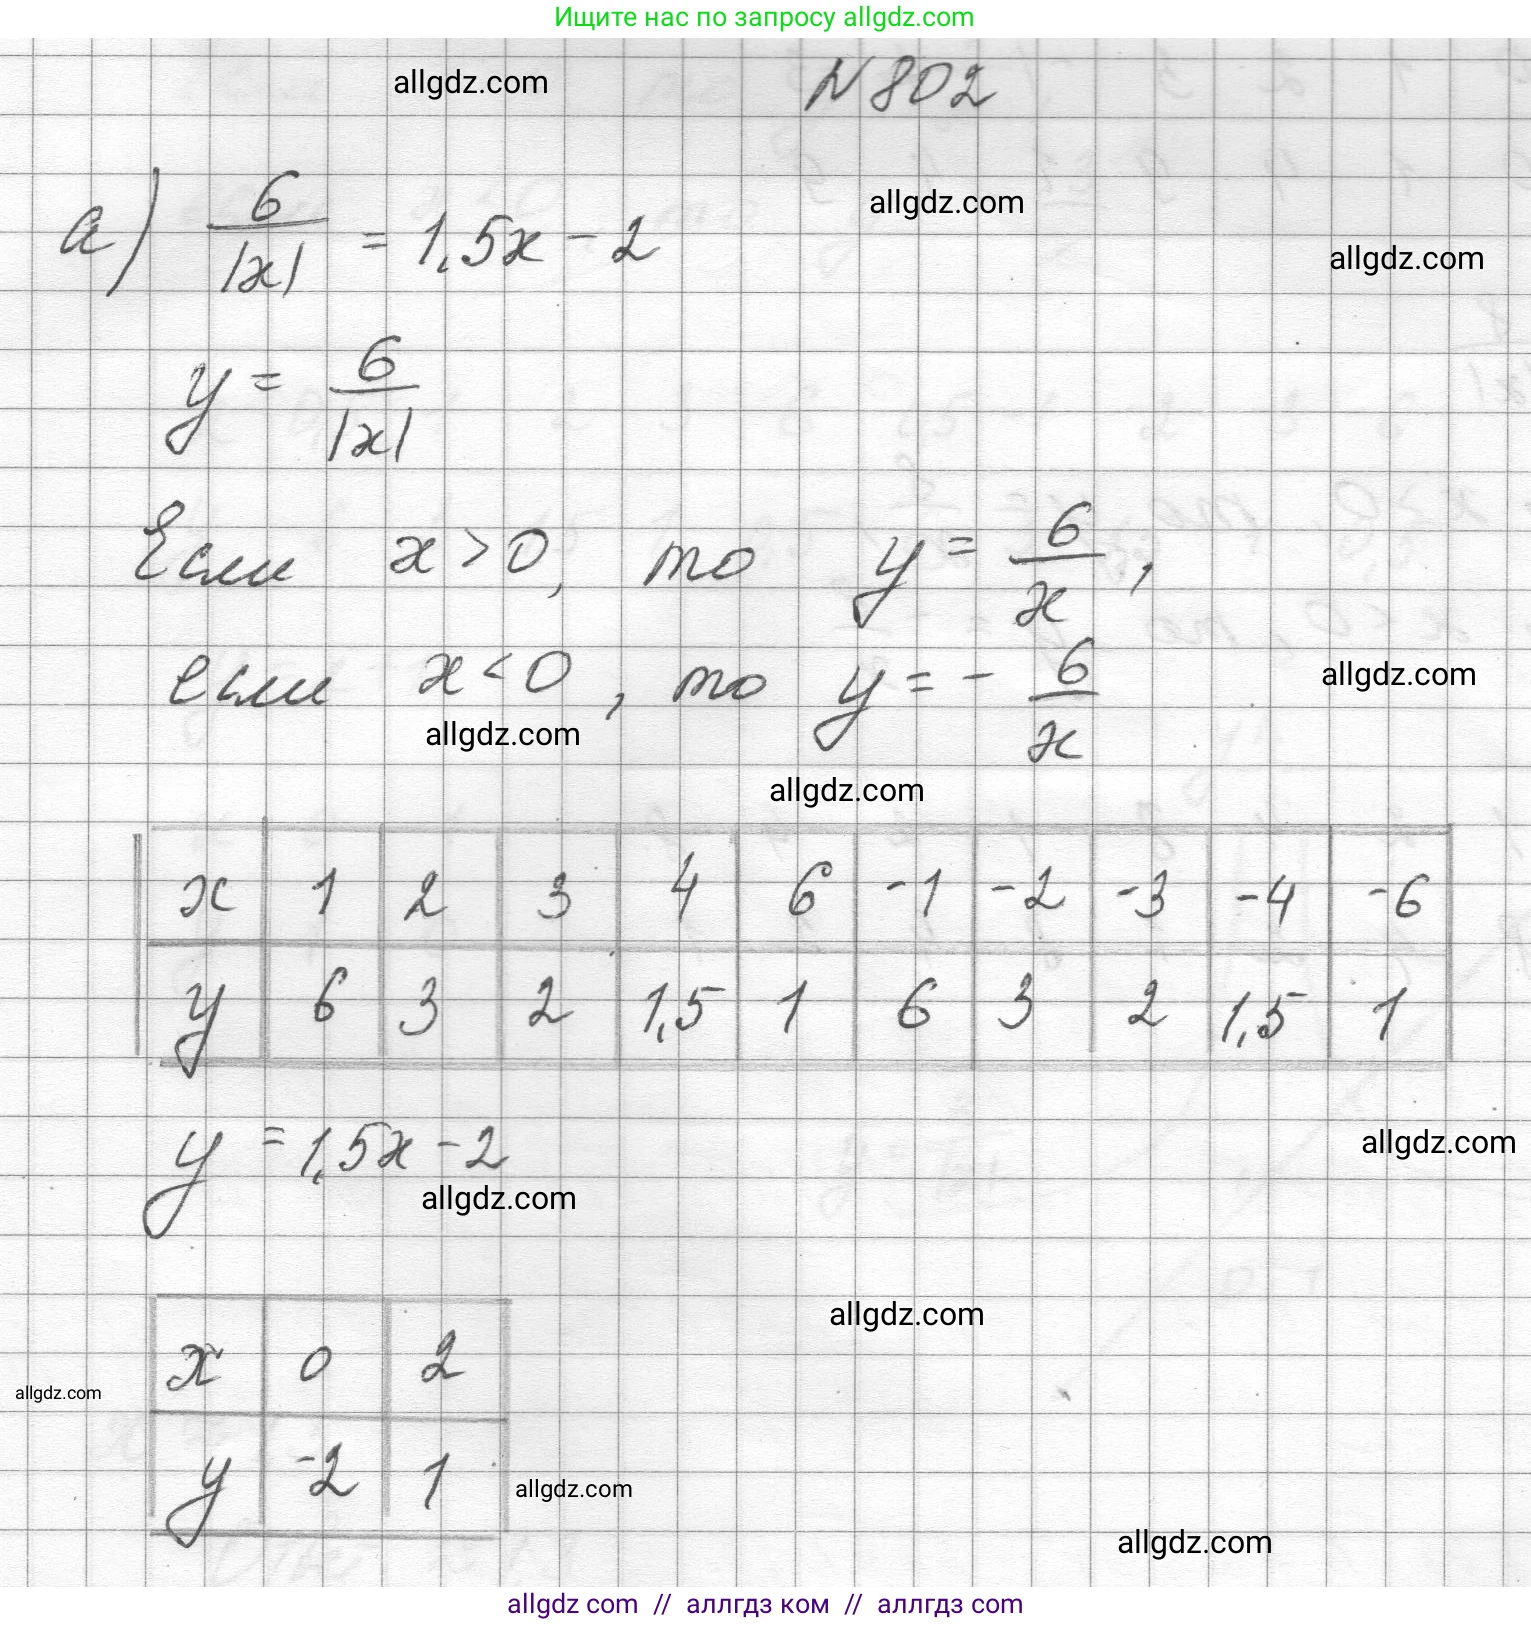 Ищите нас по запросу allgdz.com
allgdz.com
N 802
а) 6/|x| = 1,5x - 2
allgdz.com
allgdz.com
y = 6/|x|
Если x > 0, то y = 6/x,
если x < 0, то y = - 6/x
allgdz.com
allgdz.com
allgdz.com
x 1 2 3 4 6 -1 -2 -3 -4 -6
y 6 3 2 1,5 1 6 3 2 1,5 1
y = 1,5x - 2
allgdz.com
allgdz.com
allgdz.com
x 0 2
allgdz.com
y -2 1
allgdz.com
allgdz.com
allgdz com // аллгдз ком // аллгдз com